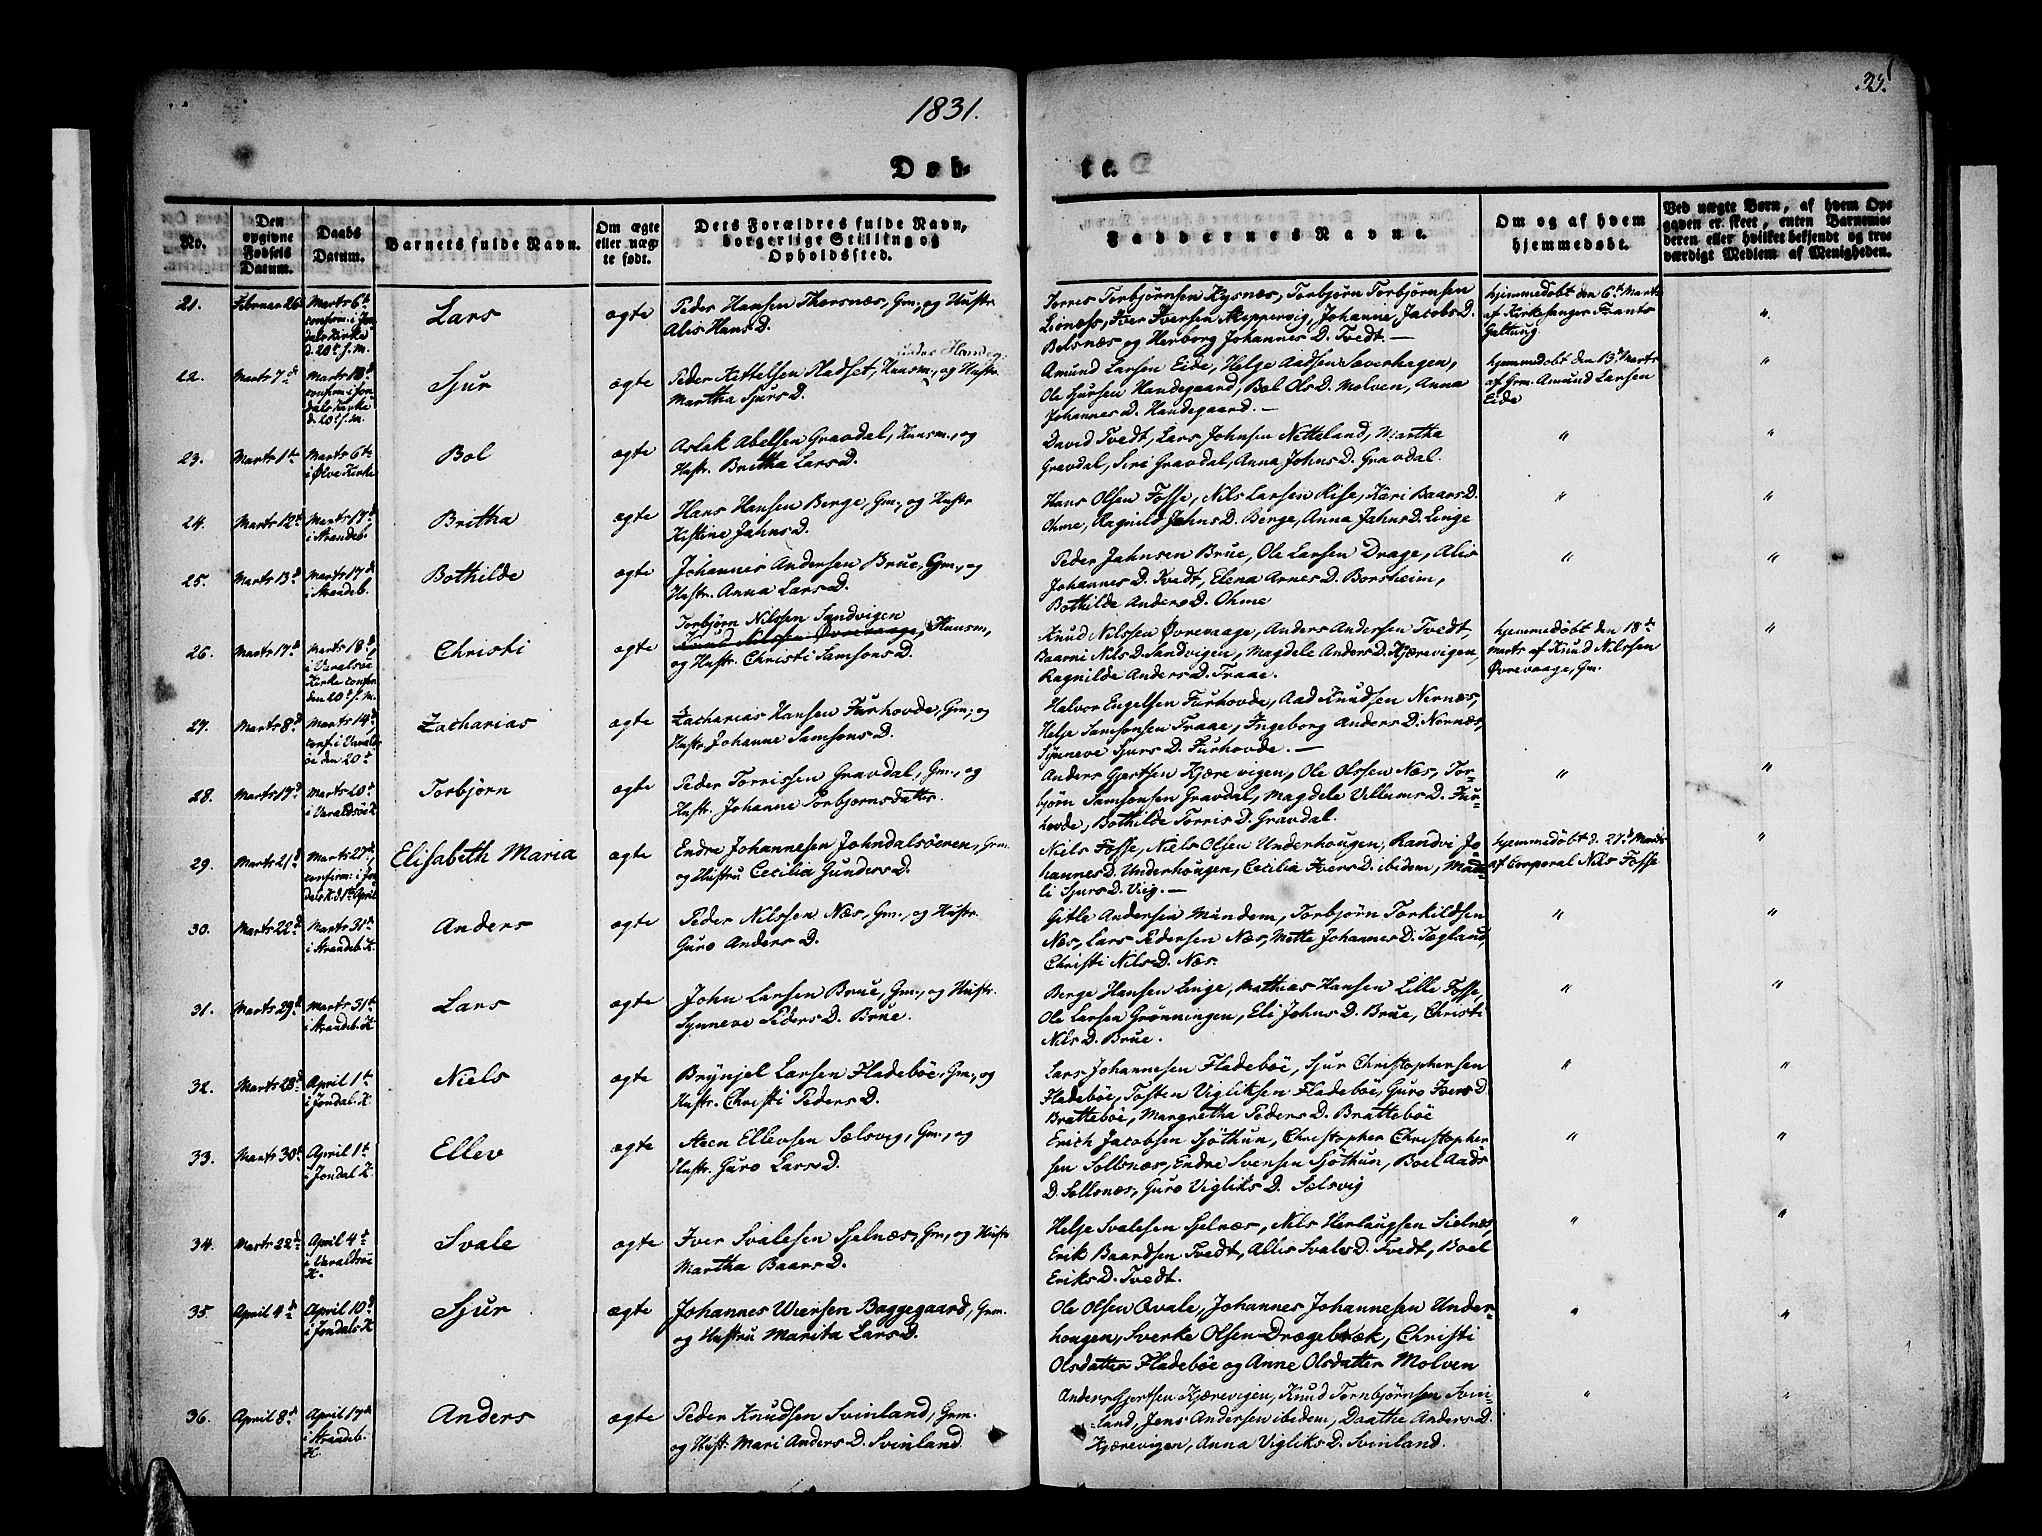 1831.
33.
Døb-
te.
No.
Den opgivne Fødsels Datum.
Daabs Datum.
Barnets fulde Navn.
Om ægte eller uægte født.
Dets Forældres fulde Navn, borgerlige Stilling og Opholdssted.
Faddernes Navne.
Om og af hvem hjemmedøbt.
Ved uægte Børn, af hvem Opgaven er skeet, enten Barnemoderen eller hvilket bekjendt og troværdigt Medlem af Menigheden.
21. Februar 26
Marts 6te
confirm. i Jon
dals Kirke
d. 20t s. m.
Lars
ægte
Peder Hansen Thorsnæs, Gm., og Hustr.
Alis Hans D.
Torres Torbjørnsen Kysnæs, Torbjørn Torbjørnsen
Lionæs, Iver Iversen Skippervig, Johanne Jacobs D.
Belsnæs og Herborg Johannes D. Tvedt. —
hjemmedøbt den 6te Marts
af Kirkesanger Frants
Galtung
"
22. Marts 7de
Marts 18d
confirm. i Jon
dals Kirke
d. 20t s. m.
Sjur
ægte
under Handeg.
Peder Kettelsen Pladset, Huusm., og Hustr.
Martha Sjurs D.
Amund Larsen Eide, Helge Aadsen Soverhagen,
Ole Sjursen Handegaard, Bol Ols D. Molven, Anna
Johannes D. Handegaard. —
hjemmedøbt den 13d Marts
af Grm. Amund Larsen
Eide
"
23. Marts 1te
Marts 6te
i Ølve Kirke
Bol
ægte
Aslak Abelsen Gravdal, Huusm., og
Hustr. Britha Lars D.
David Tvedt, Lars Johnsen Netteland, Martha
Gravdal, Siri Gravdal, Anna Johns D. Gravdal.
"
"
24. Marts 12te
Marts 17d
i Strandeb.
Britha
ægte
Hans Hansen Berge, Gm., og Hustr
Kistine Jahns D.
Hans Olsen Fosse, Nils Larsen Rise, Kari Baars D.
Ohme, Ragnild Jahns D. Berge, Anna Jahns D. Linge
"
"
25. Marts 13d
Marts 17d
i Strandeb.
Bothilde
ægte
Johannis Andersen Brue, Gm., og
Hustr. Anna Lars D.
Peder Jahnsen Brue, Ole Larsen Drage, Alis
Johannes D. Tvedt, Elena Arnes D. Borsheim,
Bothilde Anders D. Ohme
"
"
26. Marts 17d
Marts 18d,
i Varalsøe
Kirke confir
den 20t s. m.
Christi
ægte
Torbjørn Nilssen Sandvigen
Knud Nilssen Øvrevaage, Huusm,
og Hustr. Christi Samsons D.
Knud Nilssen Øvrevaage, Anders Andersen Tvedt,
Baarni Nils D. Sandvigen, Magdele Anders D. Kjærevigen,
Ragnilde Anders D. Traae.
hjemmedøbt den 18te
Marts af Knud Nilssen
Øvrevaage, Gm.
"
27. Marts 8d
Marts 14d,
conf. i Varalds
øe den 20t
Zacharias
ægte
Zacharias Hansen Furhovde, Gm., og
Hustr. Johanne Samsons D.
Halvor Engelsen Furhovde, Aad Knudsen Nernæs,
Helje Samsonsen Traae, Ingeborg Anders D. Nernæs,
Synneve Sjurs D. Furhovde. —
28. Marts 17d
Marts 20t
i Varaldsøe K
Torbjørn
ægte
Peder Torrissen Gravdal, Gm., og
Hustr. Johanne Torbjørnsdattr.
Anders Gjertsen Kjærevigen, Ole Olssen Næs, Tor-
bjørn Samsonsen Gravdal, Magdele Villums D. Fur-
hovde, Bothilde Torris D. Gravdal.
"
"
29. Marts 21d
Marts 27d,
confirm: i Jon
dals K. d. 1te April
Elisabeth Maria
ægte
Endre Johannesen Johndalsøeren, Grm.
og Hustru Cecilia Gunders D.
Niels Fosse, Niels Olsen Underhougen, Randvi Jo-
hannes D. Underhougen, Cecilia Ivers D. ibidem, Mad-
li Sjurs D. Viig. —
hjemmedøbt d. 27d Marts
af Corporal Niels Fosse
"
30. Marts 22d
Marts 31te
i Strandeb. K.
Anders
ægte
Peder Nilssen Næs, Gm., og Hustr.
Guro Anders D.
Gitle Andersen Mundem, Torbjørn Torkildsen
Næs, Lars Pedersen Næs, Mette Johannes D. Tegland,
Christi Nils D. Næs.
"
"
31. Marts 29d
Marts 31t
i Strandeb. K.
Lars
ægte
John Larsen Brue, Gm., og Hustr.
Synneve Peders D. Brue.
Berge Hansen Linge, Mathias Hansen Lille Fosse,
Ole Larsen Grønningen, Eli Johns D. Brue, Christi
Nils D. Brue.
"
"
32. Marts 28d
April 1te
i Jondal. K.
Niels
ægte
Brynjel Larsen Fladebøe, Gm., og
Hustr. Christi Peders D.
Lars Johannesen Fladebøe, Sjur Christophersen
Fladebøe, Tosten Vigliksen Fladebøe, Guro Ivers D.
Brattebøe, Margretha Peders D. Brattebøe
"
"
33. Marts 30t
April 1te
i Jondal K.
Ellev
ægte
Steen Ellevsen Sælsvig, Gm., og
Hustr. Guro Lars D.
Erich Jacobsen Sjøthun, Christopher Christopher
sen Solesnæs, Endre Svensen Sjøthun, Boel Aads
D. Solesnæs, Guro Vigliks D. Sælsvig
"
"
34. Marts 22d
April 4te
i Varaldsøe
K.
Svale
ægte
Iver Svalesen Sjelnæs, Gm, og Hustr
Martha Baars D.
Helje Svalesen Sjelnæs, Nils Herlaugsen Sielnæs,
Erik Baardsen Tvedt, Allis Svales D. Tvedt, Boel
Eriks D. Tvedt.
"
"
35. April 4d
April 10d
i Jondals K
Sjur
ægte
Johannes Wiersen Baggegaard, Grm.
og Hustru Marita Lars D.
Ole Olsen Qvale, Johannes Johannesen Under-
hougen, Sverke Olsen Drægebræk, Christi
Olsdatter Fladebøe og Anne Olsdatter Molven
"
"
36. April 8d
April 17de
i Strandeb.
K.
Anders
ægte
Peder Knudsen Svinland, Grm.
og Hustr: Mari Anders D. Svinland.
Anders Gjertsen Kjærevigen, Knud Tornbjørnsen Svin-
land, Jens Andersen ibidem, Daathe Anders D.
Kjærevigen, Anna Vigliks D. Svinland.
"
"